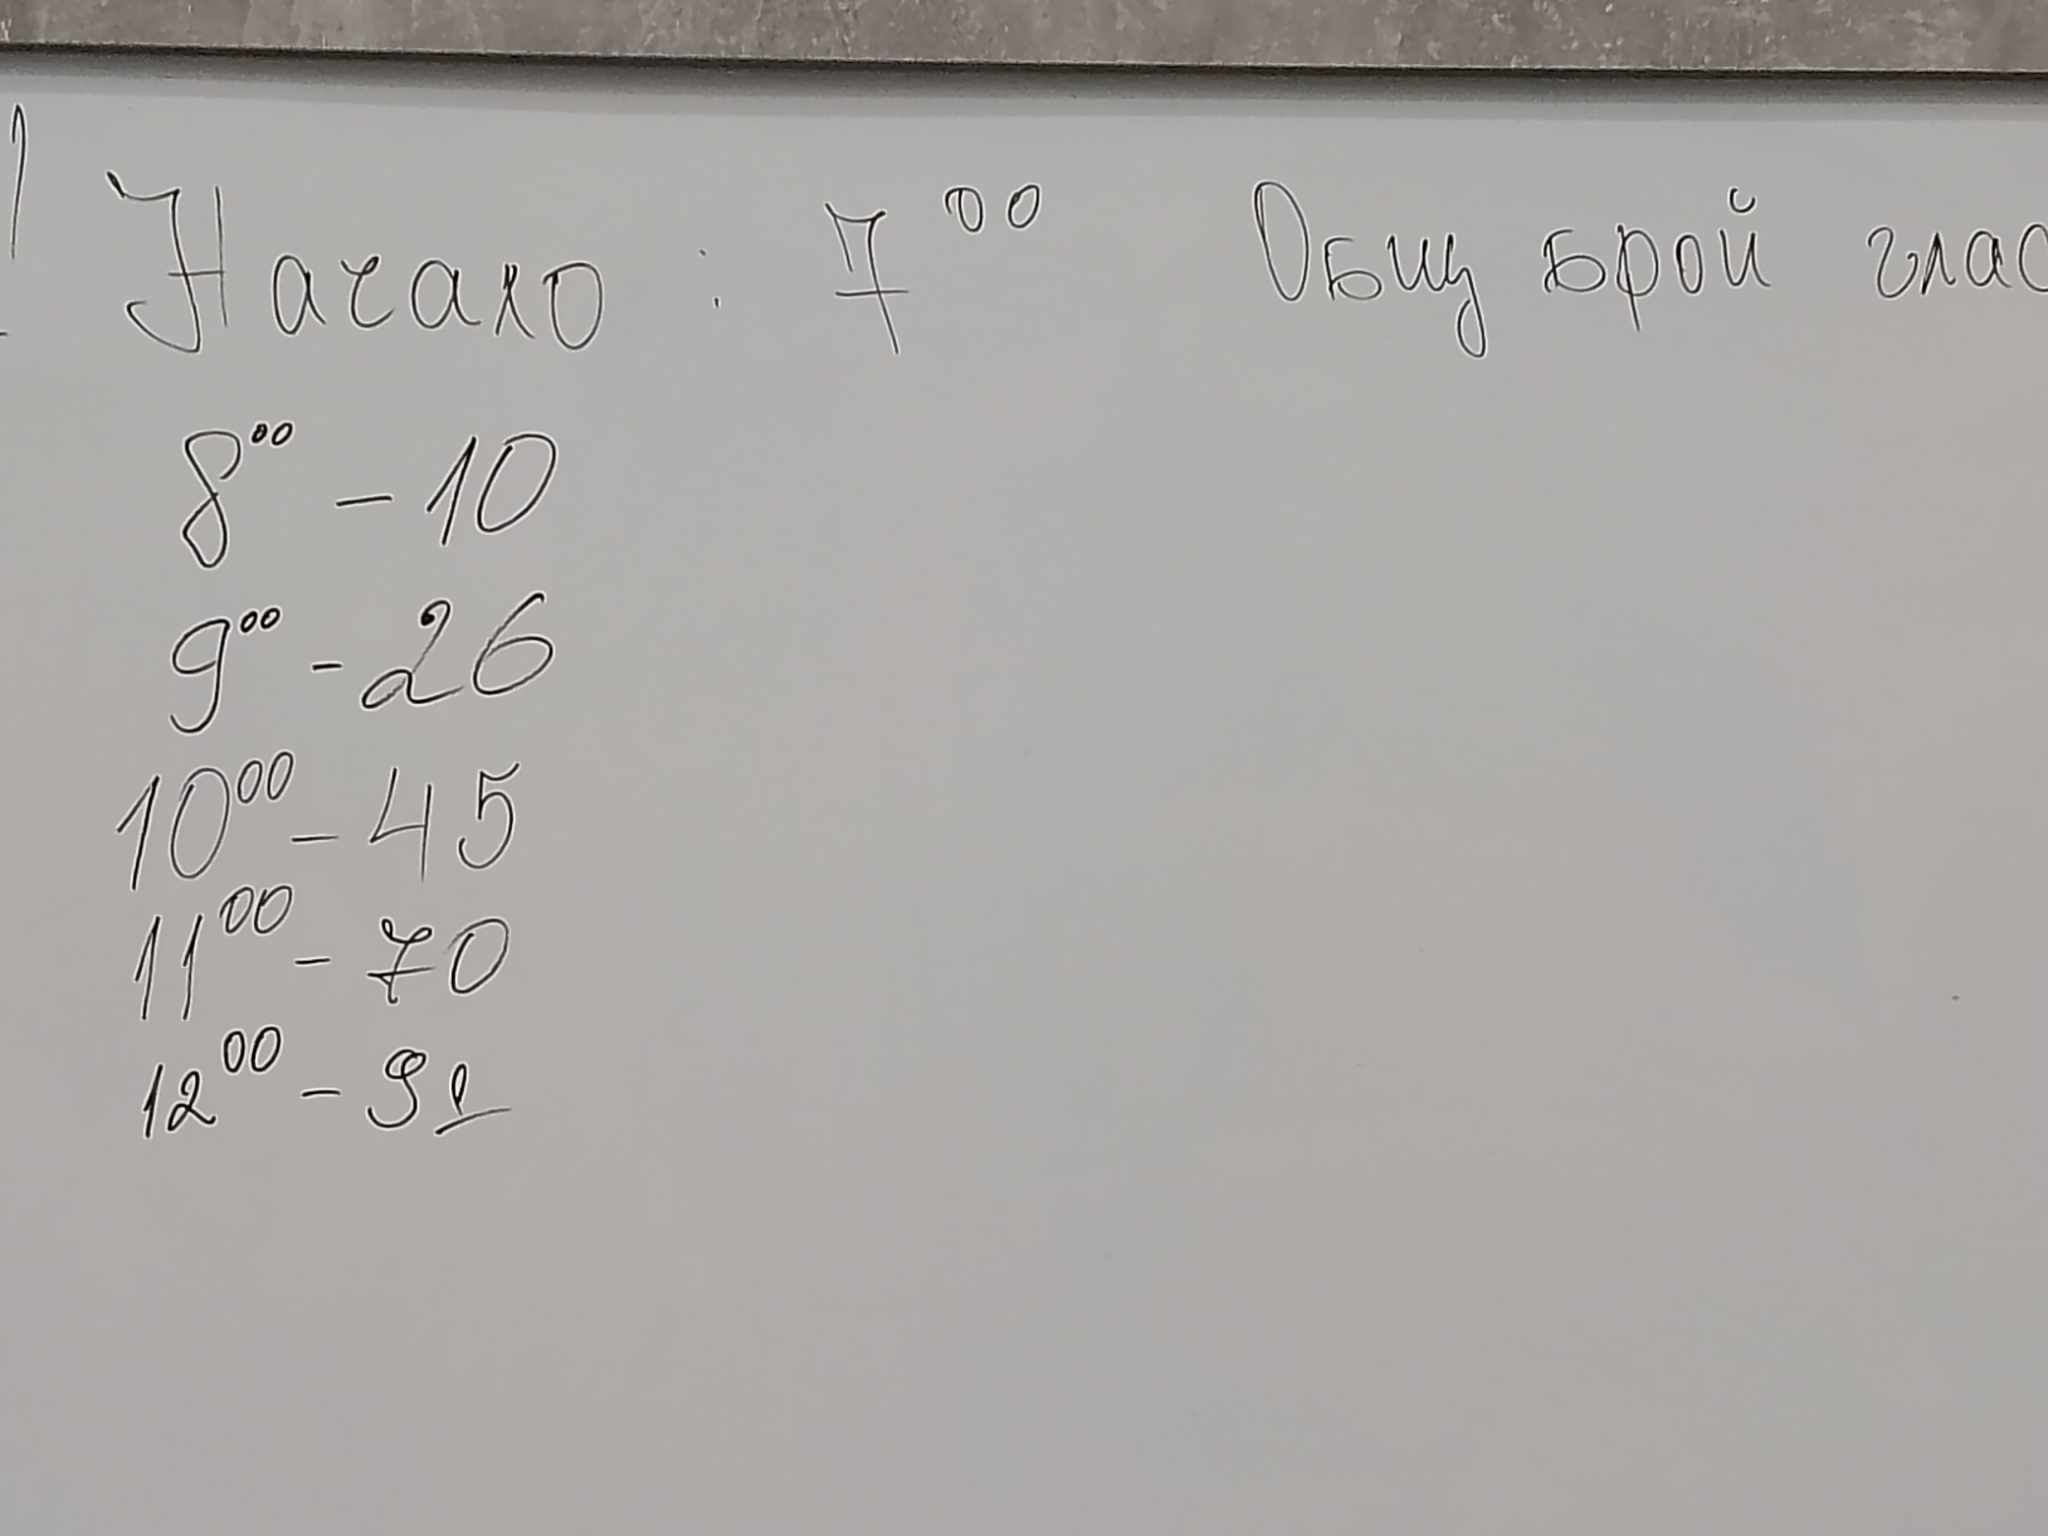 ! Начало : 7⁰⁰ Общ брой глас
8⁰⁰ - 10
9⁰⁰ - 26
10⁰⁰ - 45
11⁰⁰ - 70
12⁰⁰ - 91